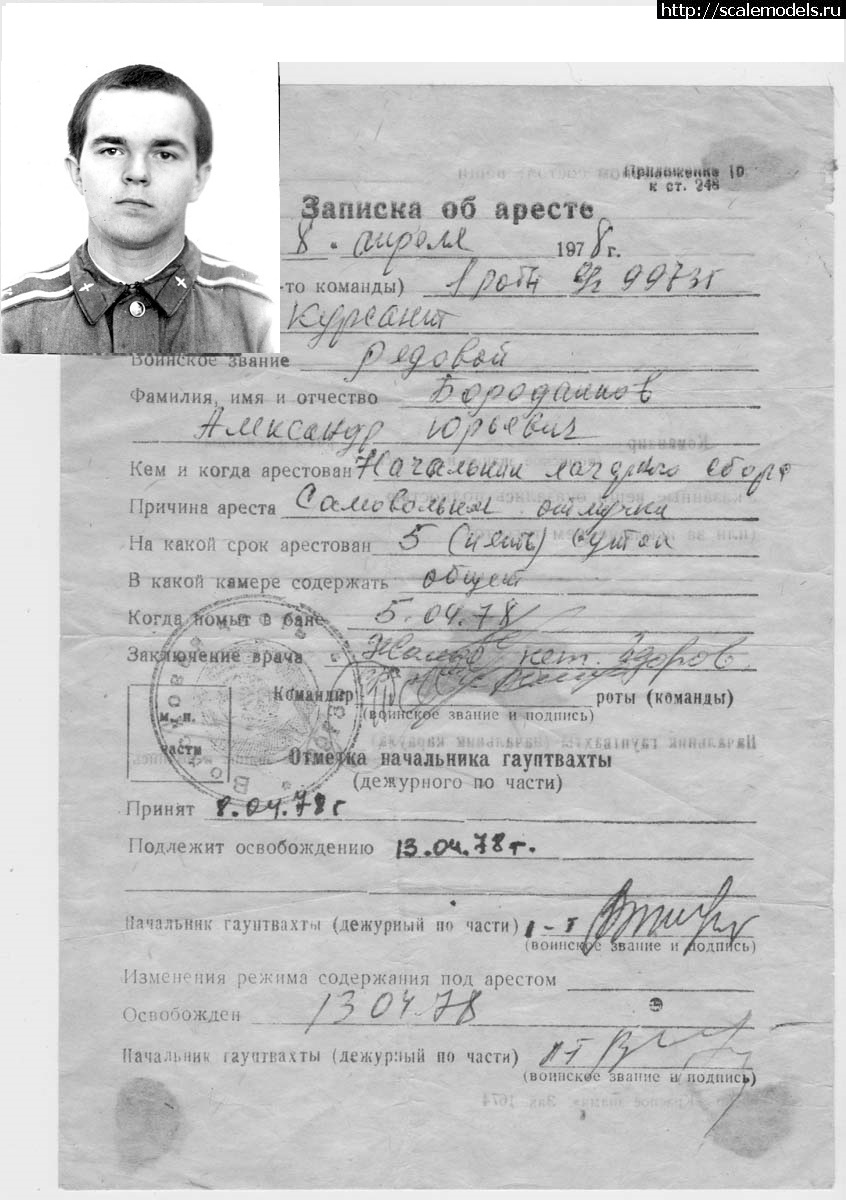 http://scalemodels.ru
Приложение 10
к ст. 248
Записка об аресте
8. апреля 1978 г.
-то команды) 1 роты в/ч 99735
Курсант
Воинское звание рядовой
Фамилия, имя и отчество
Александр Юрьевич
Кем и когда арестован Начальник сбора
Причина ареста Самовольная отлучка
На какой срок арестован 5 (пять) суток
В какой камере содержать общей
Когда помыт в бане 5.04.78
Заключение врача Жалоб нет. Здоров
Командир роты (команды)
(воинское звание и подпись)
м. п.
части
Отметка начальника гауптвахты
(дежурного по части)
Принят 8.04.78 г
Подлежит освобождению 13.04.78 г.
Начальник гауптвахты (дежурный по части)
(воинское звание и подпись)
Изменения режима содержания под арестом
Освобожден 13 04.78
Начальник гауптвахты (дежурный по части)
(воинское звание и подпись)